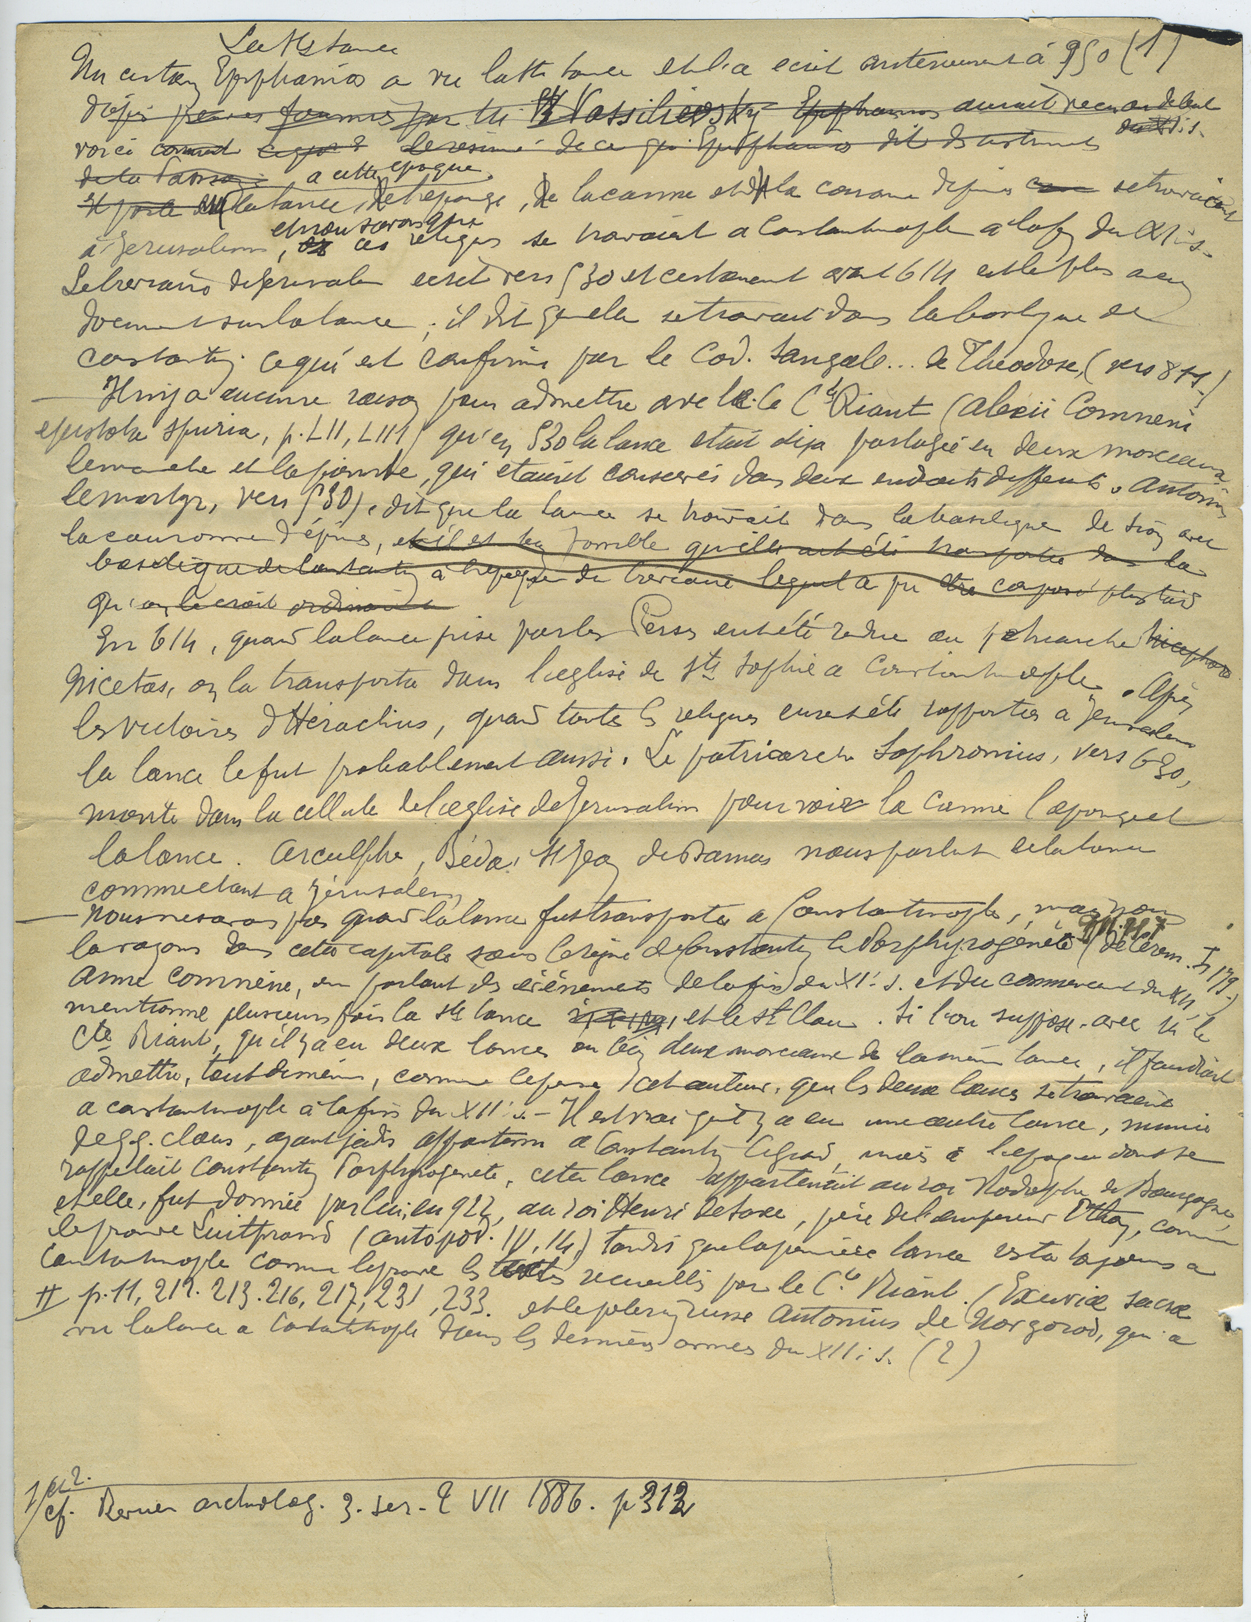 La Ste lance
Un certain Epiphanios a vu la Ste lance et l'a écrit antérieurement à 950 (1)
d'après preuves fournies par Mr Vassilievsky Epiphanios aurait vécu au debut
du XII s.
voici comment le résumé de ce que Epiphanios dit des instruments
de la Passion a cette époque.
la lance, de l'eponge, de la canne et de la couronne d'epines se trouvaient
à Jerusalem, et nous savons que ces reliques se trouvaient a Constantinople a la fin du XI s.
Le breviaire de Jerusalem écrit vers 530 et certainement avant 614 est le plus ancien
document sur la lance ; il dit qu'elle se trouvait dans la basilique de
Constantin. ce qui est confirmé par le Cod. Sangall... de Théodose, (vers
Il n'y a aucune raison pour admettre avec le Cte Riant (Alexii Comneni
epistola spuria, p. LII, LIII) qu'en 530 la lance etait deja partagée en deux morceaux
le manche et la pointe, qui etaient conservés dans deux endroits differents. Antonin
le martyr, vers 530, dit que la lance se trouvait dans la basilique de Sion avec
la couronne d'épines, et il est bien possible qu'elle ait été transportée dans la
basilique de Constantin à l'epoque du breviaire lequel a pu être composé plus tard
qu'on le croit ordinairement
En 614, quand la lance prise par les Perses eut été rendue au patriarche Nicephore
Nicetas, on la transporta dans l'eglise de Ste Sophie a Constantinople. Après
les victoires d'Héraclius, quand toutes les reliques eurent été rapportées a Jerusalem
la lance le fut probablement aussi. Le patriarche Sophronius, vers 630,
monte dans la cellule de l'eglise de Jerusalem pour voir la canne l'eponge et
la lance. Arculphe, Béda, St Jean de Damas nous parlent de la lance
comme etant a Jérusalem,
Nous ne savons pas quand la lance fut transportée a Constantinople, mais nous
la voyons dans cette capitale sous le règne de Constantin le Porphyrogénète (de Cerem. I, 179.)
Anne Comnène, en parlant des événements de la fin du XI s. et du commencement du XII,
mentionne plusieurs fois la Ste lance et le St Clou. Si l'on suppose, avec Mr le
Cte Riant, qu'il y a eu deux lances ou bien deux morceaux de la même lance, il faudrait
admettre, tout de même, comme le pense cet auteur, que les deux lances se trouvaient
a Constantinople à la fin du XII s. – Il est vrai qu'il y a eu une autre lance, munie
de qq. clous, ayant jadis appartenu a Constantin le grand, mais à l'epoque dont se
rappelait Constantin Porphyrogenete, cette lance appartenait au roi Rodolphe de Bourgogne,
et elle, fut donnée par lui, en 922, au roi Henri de Saxe, père de l'empereur Othon, comme
le prouve Luitprand (antopod. IV, 14,) tandis que la première lance resta toujours a
Constantinople comme le prouve les textes recueillis par le Cte Riant. (Exuviæ sacræ
II p. 11, 212. 213. 216, 217, 231, 233. et le pelerin russe Antonius de Novgorod, qui a
vu la lance a Constantinople dans les dernières années du XII s. (2)
1 et 2.
cf. Revue archeolog. 3. ser. t VII 1886. p 312